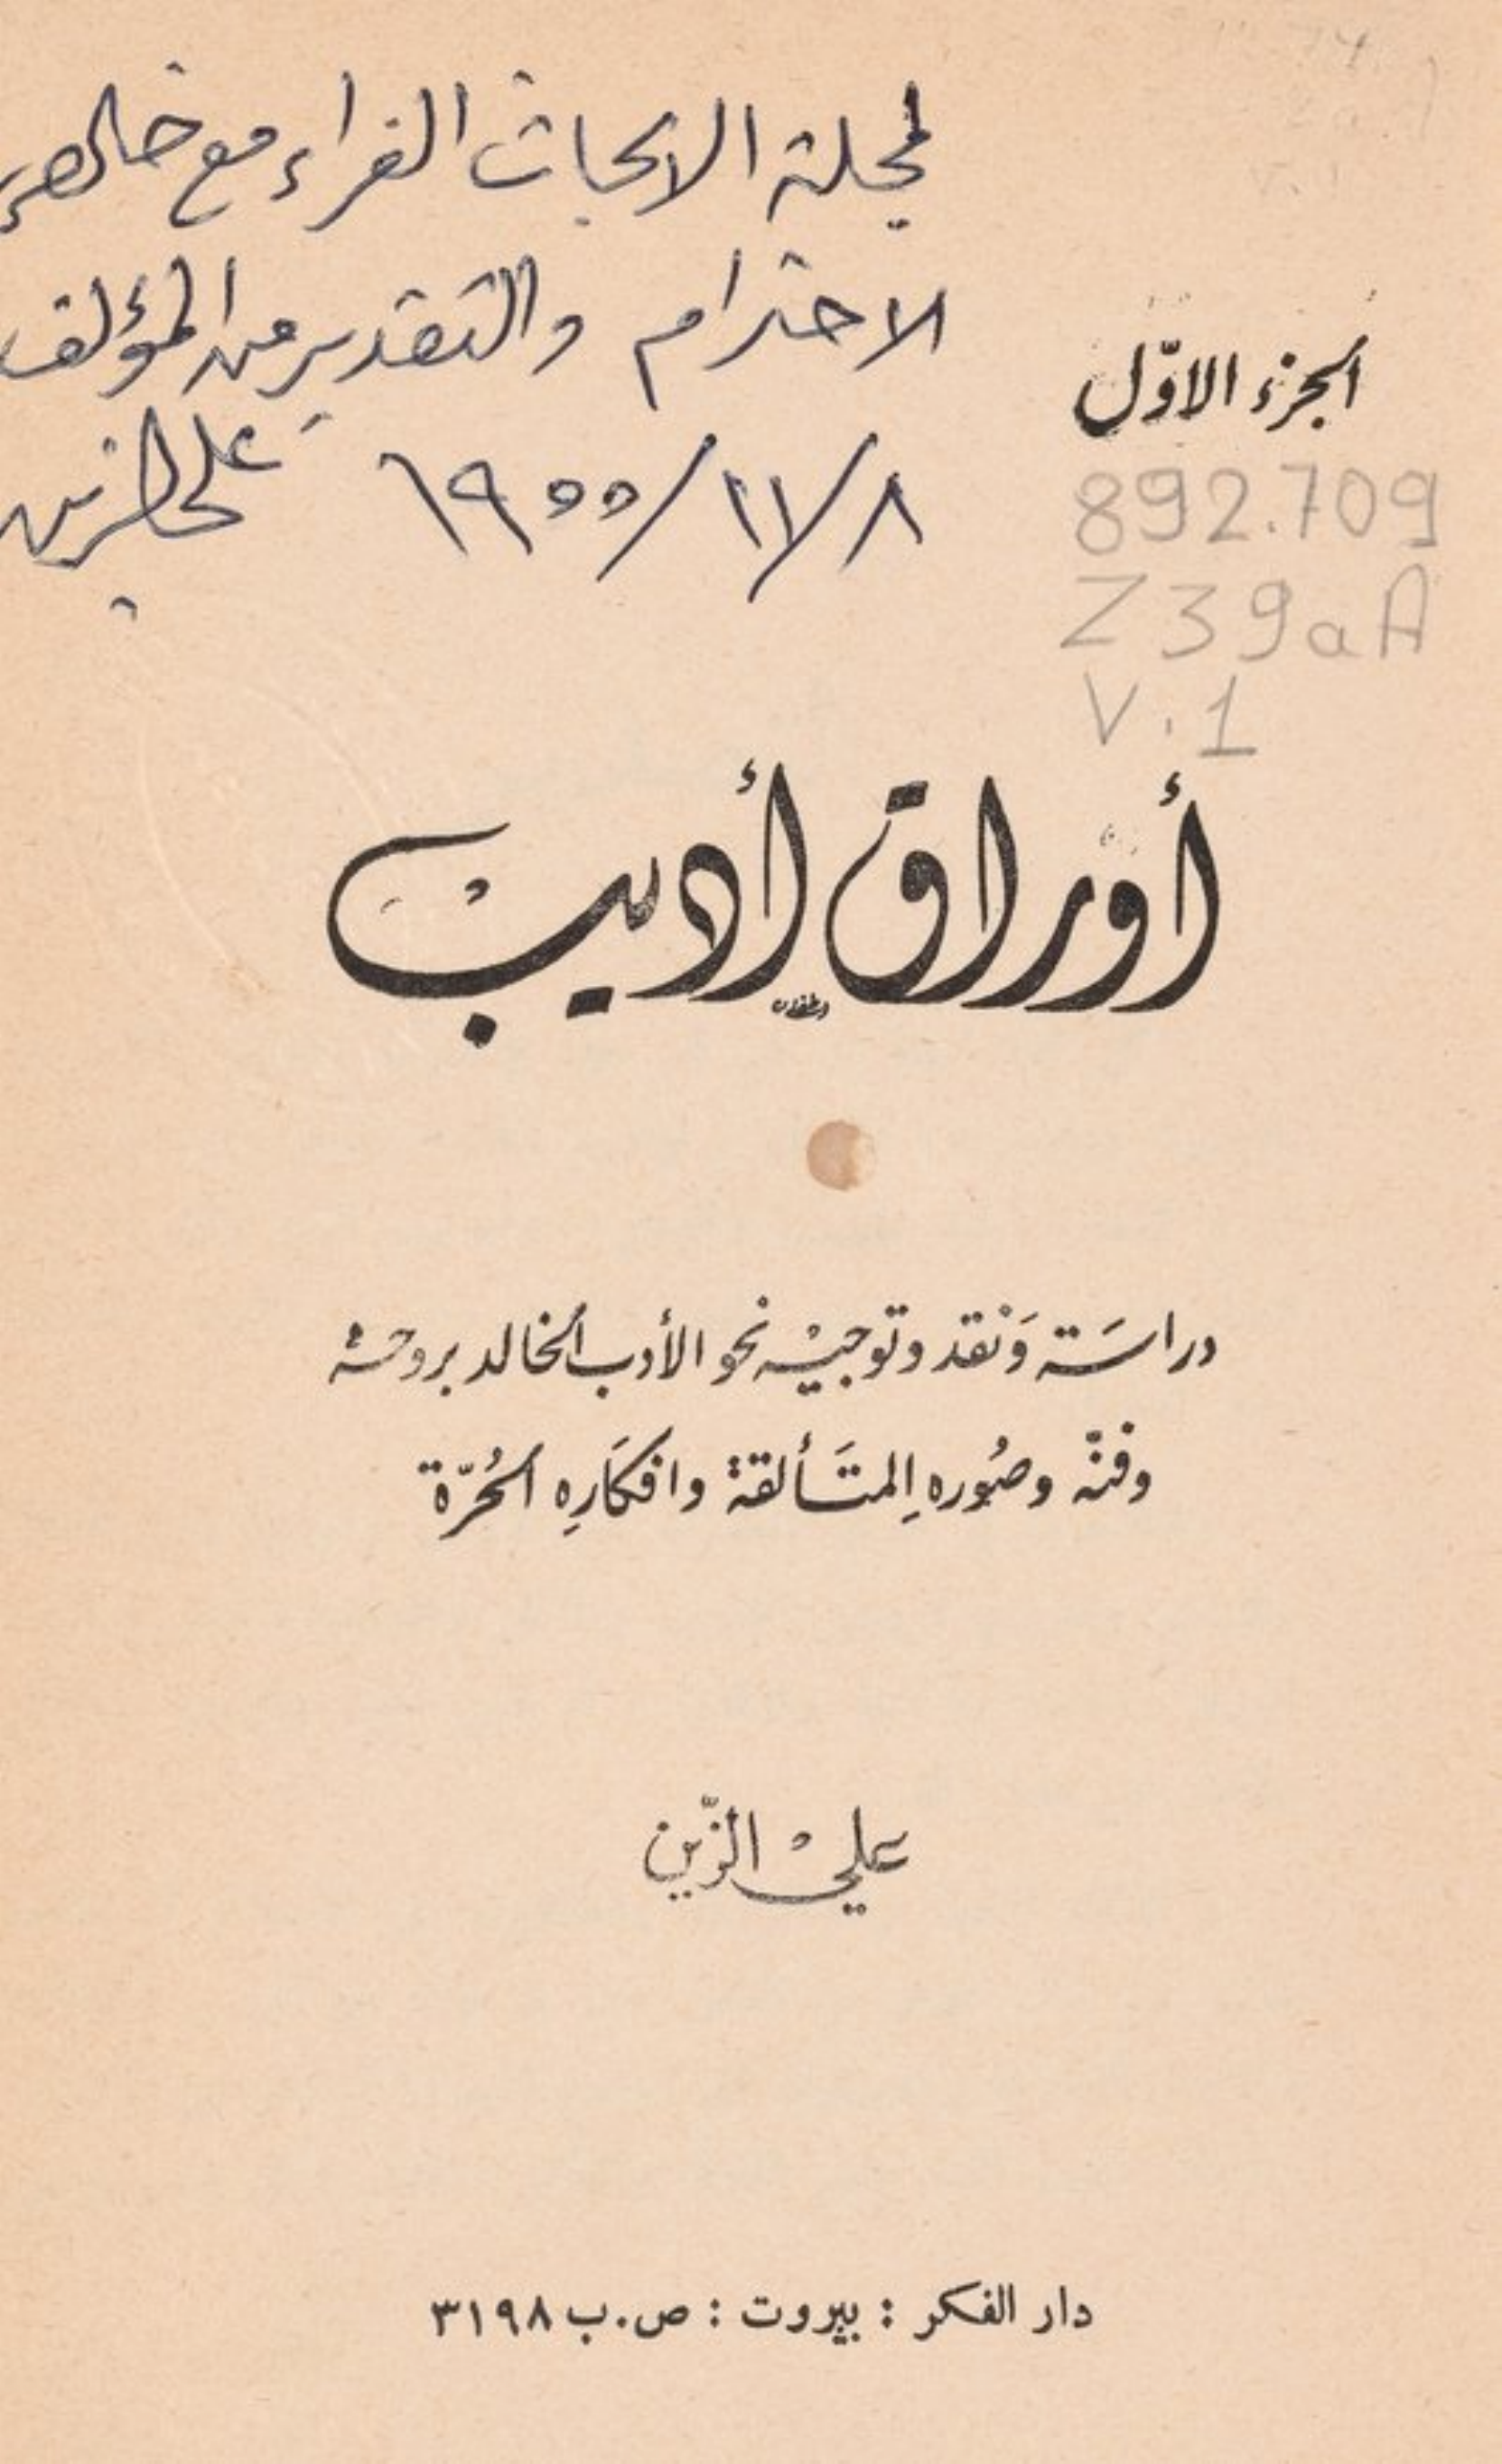 لمجلة الابحاث الغراء مع خالص
الاحترام والتقدير من المؤلف
٨/١١/١٩٥٥ علي الزين
الجزء الاوّل
892.709
Z39aA
V.1
أوراق أديب
دراسَة وَنقد وتوجيْه نحو الأدب الخالد بروحه
وفنّه وصُوره المتَألقة وافكَارِه الحُرّة
عليْ الزّين
دار الفكر : بيروت : ص.ب ٣١٩٨